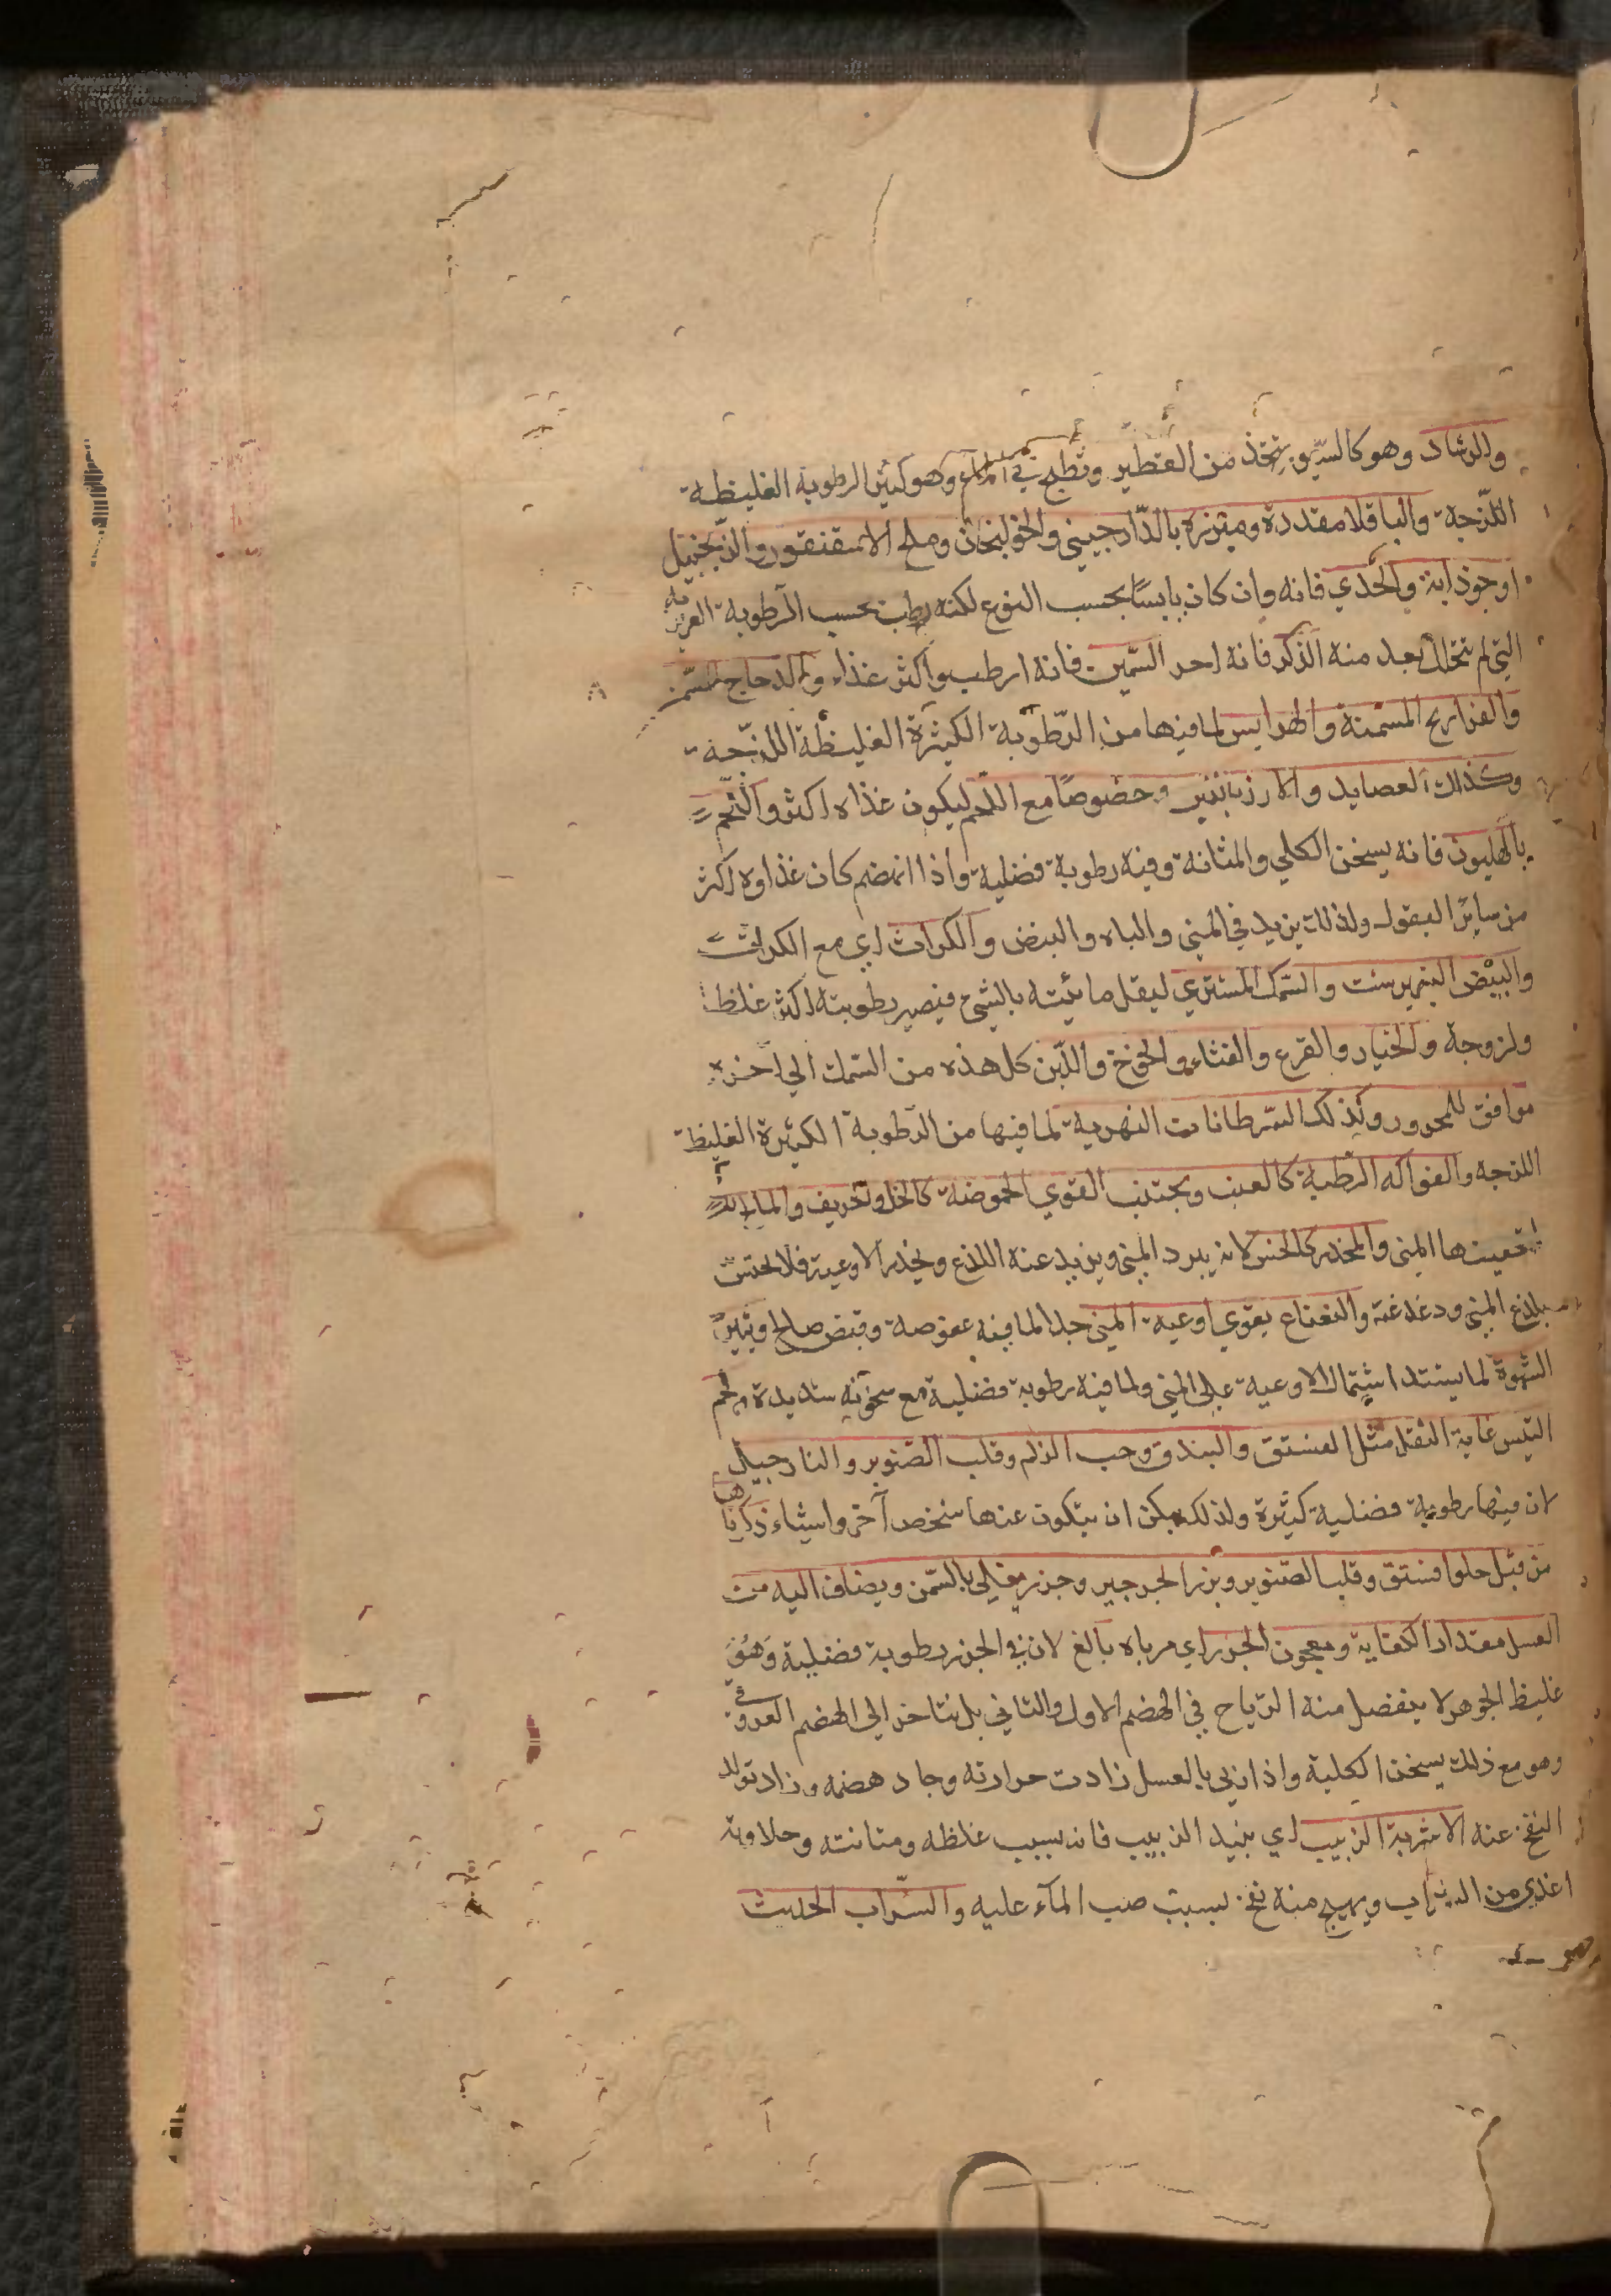 والرشاد وهو كالسيور يتخذ من الفطير وتطبخ في الماء وهو كثير الرطوبة الغليظة
اللزجة والباقلا مقددة ومبزرة بالدارجيني والخولنجان وملح الاسقنقور والزنجبيل
اوجوذابة والجدي فانه وان كان يابسا بحسب النوع لكنه رطب بحسب الرطوبة الغريزية
التي لم تتحلل بعد منه الذكر فانه احر السمين فانه ارطب واكثر غذاء والدجاج المسمن
والفراريج المسمنة والهرايس لما فيها من الرطوبة الكثيرة الغليظة اللزجة
وكذلك العصايد والارز باللبن وخصوصا مع اللحم ليكون غذاه اكثر واللحم
بالهليون فانه يسخن الكلي والمثانة وفيه رطوبة فضلية واذا انهضم كان غذاوه اكثر
من ساير البقول ولذلك يزيد في المني والباه والبيض والكراث اي مع الكراث
والبيض النيمبرشت والسمك المشوي ليقل مائيته بالشي فيصير رطوبته اكثر غلظا
ولزوجة والخيار والقرع والقثاء والخوخ واللبن كل هذه من السمك الي اخره
موافق للمحرور وكذلك السرطانات النهرية لما فيها من الرطوبة الكثيرة الغليظة
اللزجه والفواكه الرطبة كالعنب ويجتنب القوي الحموضة كالخل والحريف والمالح
المني والمخدر كالخس لانه يبرد المني ويزيد عنه اللذع ويخدر الاوعية فلا تحتس
بلذع المني ودغدغته والنعناع يقوي اوعية المني جدا لما فيه عفوصة وقبض صالح ويثير
الشهوة لما يشتد اشتمال الاوعية علي المني ولما فيه رطوبة فضلية مع سخونة شديدة ولحم
التيس غاية النقل مثل الفستق والبندق وحب الزلم وقلب الصنوبر والنارجيل
لان فيها رطوبة فضلية كثيرة ولذلك يمكن ان يتكون عنها شخص آخر واشياء ذكرناها
من قبل حلوا فستق وقلب الصنوبر وبزر الجرجير وجزر مغلي بالسمن ويضاف اليه من
العسل مقدار الكفاية ومعجون الجزر اي مرباه بالغ لان في الجزر رطوبة فضلية وهو
غليظ الجوهر لا ينفصل منه الرياح في الهضم الاول والثاني بل يتاخر الي الهضم العروقي
وهو مع ذلك يسخن الكلية واذا ربي بالعسل زادت حرارته وجاد هضمه وزاد تولد
النفخ عنه الاشربة الزبيب اي نبيذ الزبيب فانه بسبب غلظه ومتانته وحلاوته
اغذي من الشراب ويهيج منه نفخ بسبب صب الماء عليه والشراب الحديث